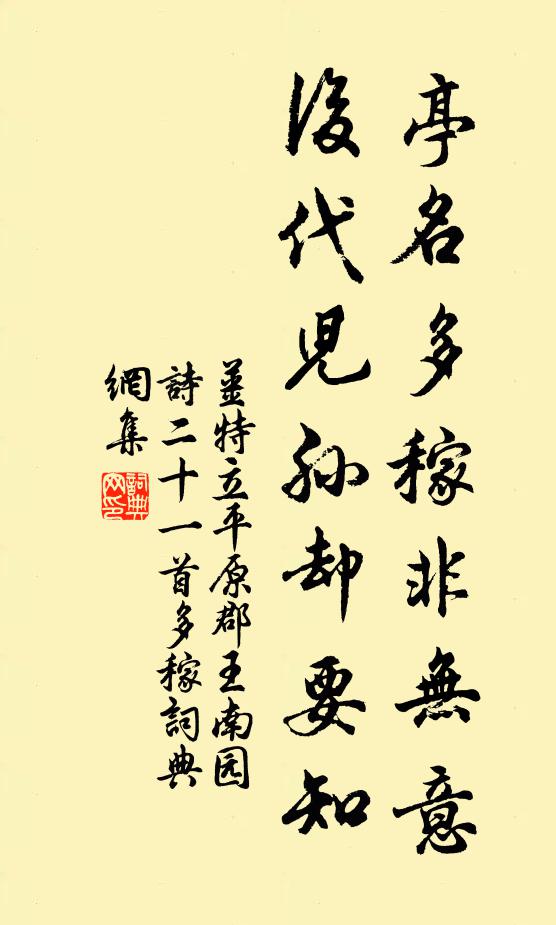 亭名多稼非無意
後代児孫却要知
薑特立平原郡王南园
詩二十一首多稼詞典
網集
詞典网印